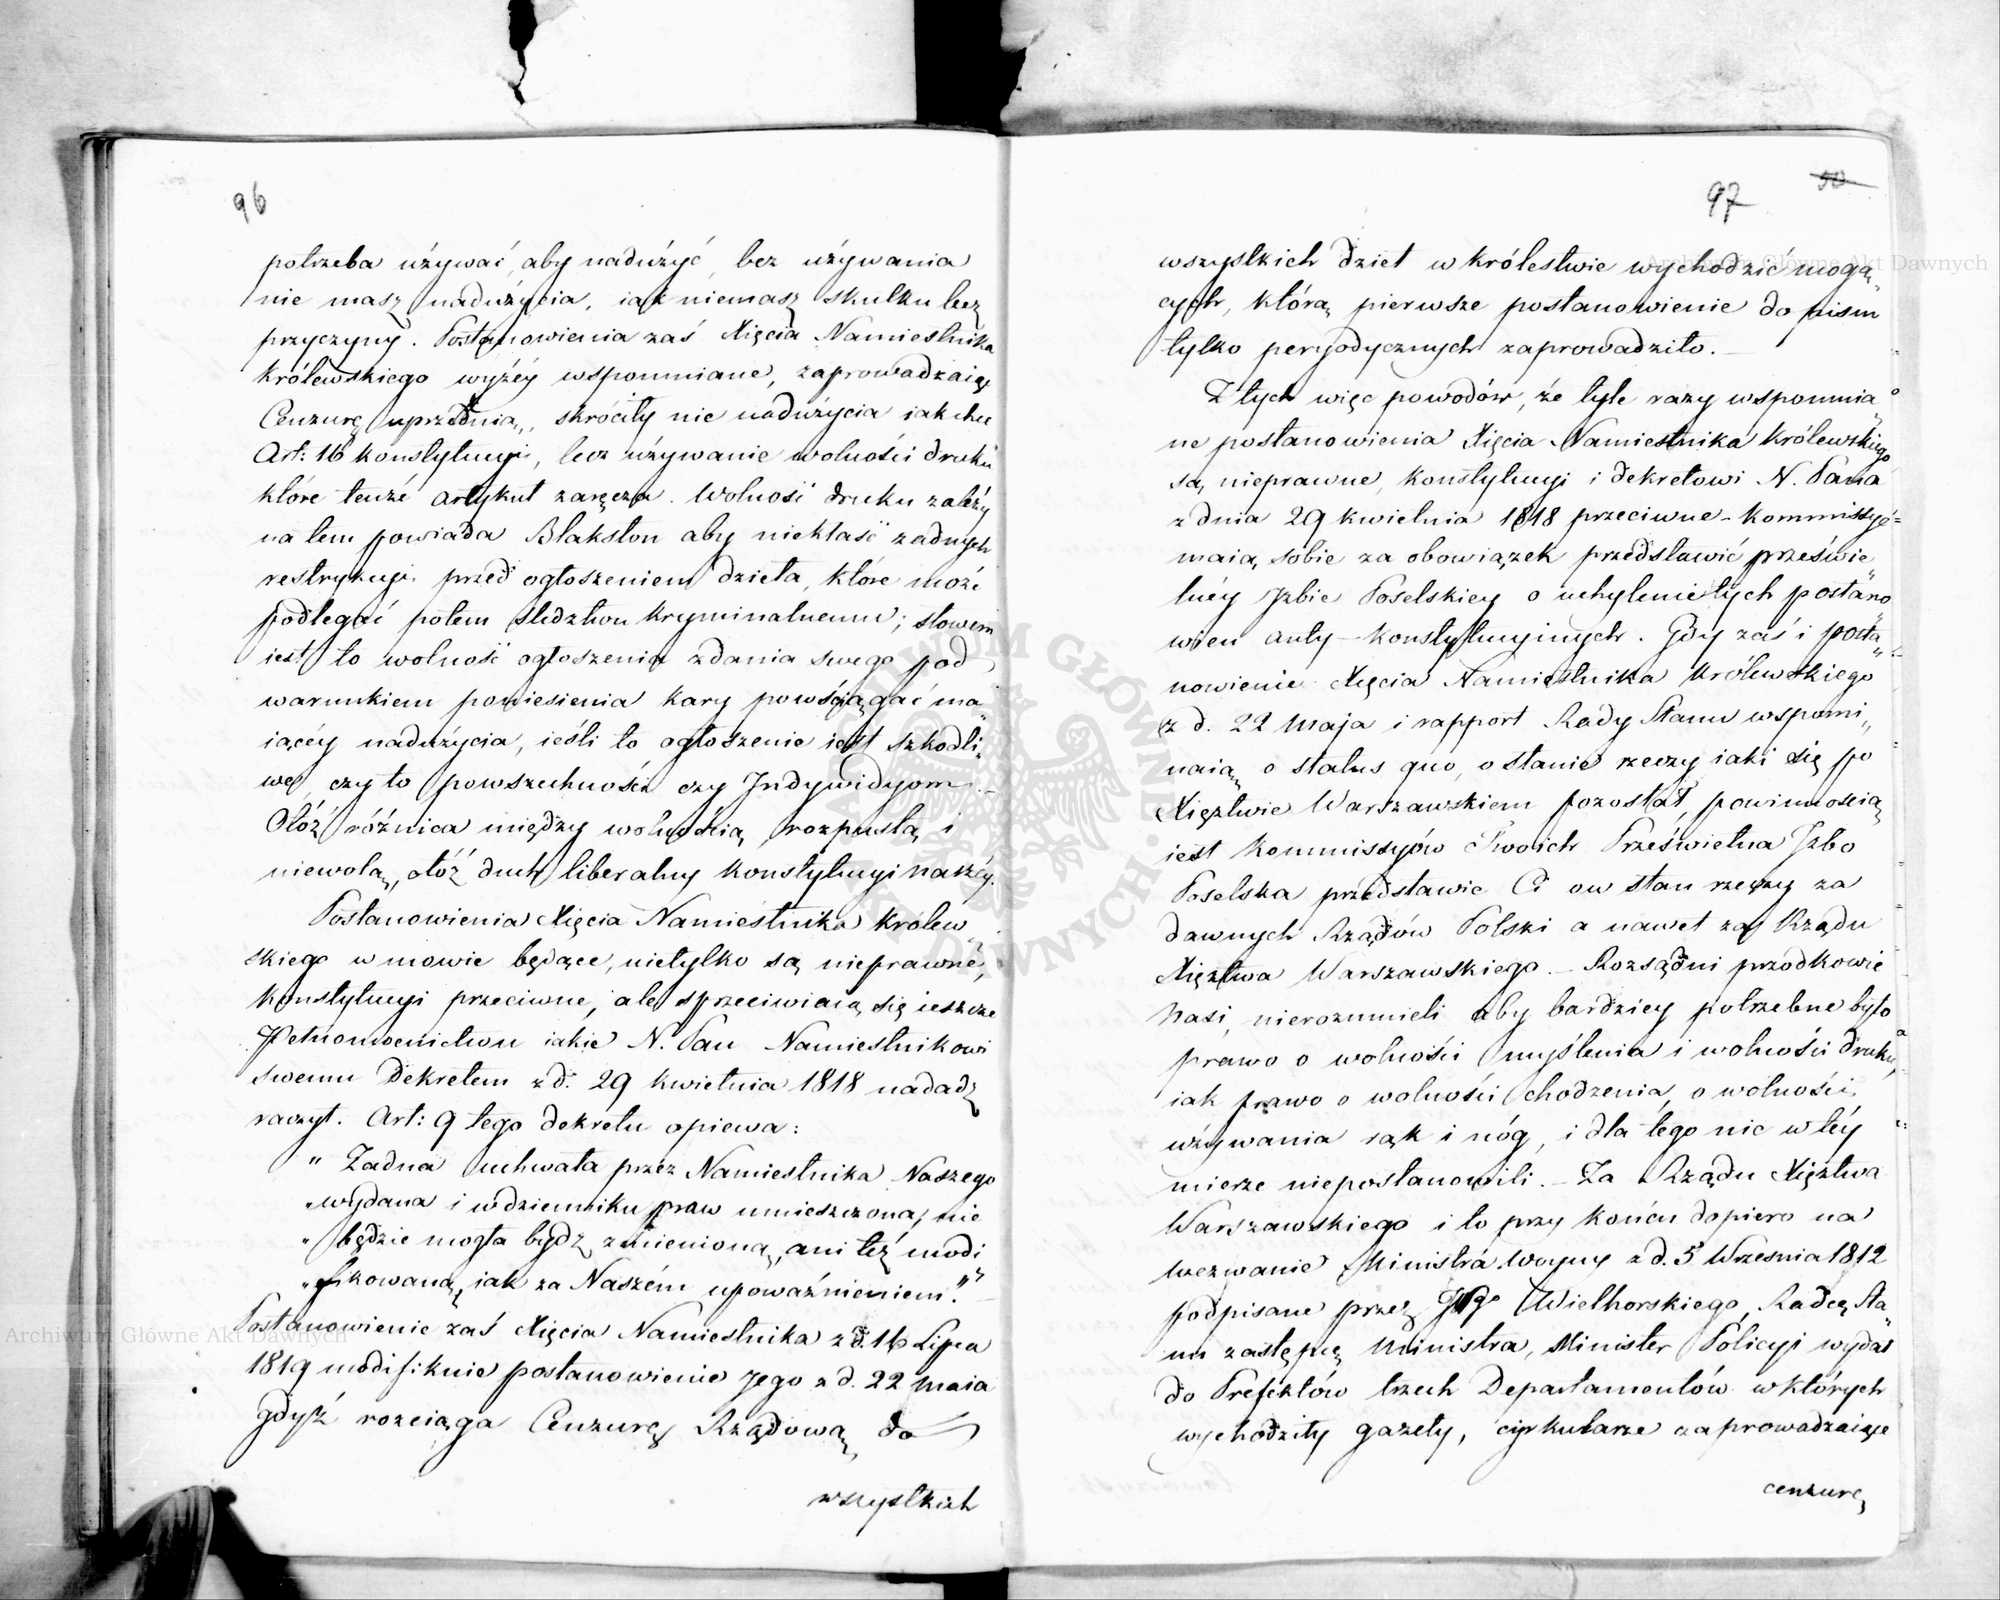 96
potrzeba używać, aby nadużyć, bez używania
nie masz nadużycia, iak niemasz skutku bez
przyczyny. Postanowienia zaś Xięcia Namiestnika
Królewskiego wyżéy wspomniane, zaprowadzaiąc
Cenzurę uprzednią, skróciły nie nadużycia iak chce
Art: 16 konstytucyi, lecz używanie wolności druku
które tenże artykuł zaręcza. Wolność druku zależy
na tem powiada Blakston aby niekłaść żadnych
restrykcyi przed ogłoszeniem dzieła, które może
podlegać potem śledztwu kryminalnemu; słowem
iest to wolność ogłoszenia zdania swego pod
warunkiem poniesienia kary powściągać ma„
iącéy nadużycia, ieśli to ogłoszenie iest szkodli„
we, czy to powszechności czy Indywidyom.—
Otóż różnica między wolnością, rozpustą i
niewolą, otóż duch liberalny konstytucyi naszéy.
Postanowienia Xięcia Namiestnika Królew„
skiego w mowie będące, nietylko są nieprawne,
konstytucyi przeciwne, ale sprzeciwiaią się ieszcze
Pełnomocnictwu iakie N. Pan Namiestnikowi
swemu Dekretem z d. 29 kwietnia 1818 nadadz
raczył. Art: 9 tego dekretu opiewa:
„ Żadna uchwała przez Namiestnika Naszego
„wydana i w dzienniku praw umieszczona, nie
„będzie mogła bydź zmienioną, ani też modi
„fikowaną, iak za Naszém upoważnieniem."
Postanowienie zaś Xięcia Namiestnika z d. 16 Lipca
1819 modifikuie postanowienie Jego z d. 22 Maia
gdyż rozciąga Cenzurę Rządową do
wszystkich
97 50
wszystkich dzieł w królestwie wychodzić mogą„
cych, którą pierwsze postanowienie do pism
tylko peryodycznych zaprowadziło.—
Z tych więc powodów, że tyle razy wspomnia„
ne postanowienia Xięcia Namiestnika Królewskiego
są nieprawne, konstytucyi i dekretowi N. Pana
z dnia 29 kwietnia 1818 przeciwne - Kommissye
maią sobie za obowiązek przedstawić prześwie„
tnéy Izbie Poselskiey o uchylenie tych postano„
wień anty-konstytucyinych. Gdy zaś i posta„
nowienie Xięcia Namiestnika Królewskiego
z d. 22 Maja i rapport Rady Stanu wspomi„
naią o status quo, o stanie rzeczy iaki się po
Xięztwie Warszawskiem pozostał, powinnością
iest Kommissyów Twoich Prześwietna Izbo
Poselska przedstawić Ci ów stan rzeczy za
dawnych Rządów Polski a nawet za Rządu
Xięztwa Warszawskiego.— Rozsądni przodkowie
nasi, nierozumieli aby bardziey potrzebne było
prawo o wolności myślenia i wolności druku,
iak prawo o wolności chodzenia, o wolności
używania rąk i nóg, i dla tego nic w téy
mierze niepostanowili.— Za Rządu Xięztwa
Warszawskiego i to przy końcu dopiero na
wezwanie Ministra Woyny z d. 5 Września 1812
podpisane przez Wielhorskiego, Radcę Sta„
nu zastępcę Ministra, Minister Policyi wydał
do Prefektów trzech Departamentów w których
wychodziły gazety, cyrkularze zaprowadzaiące
cenzurę